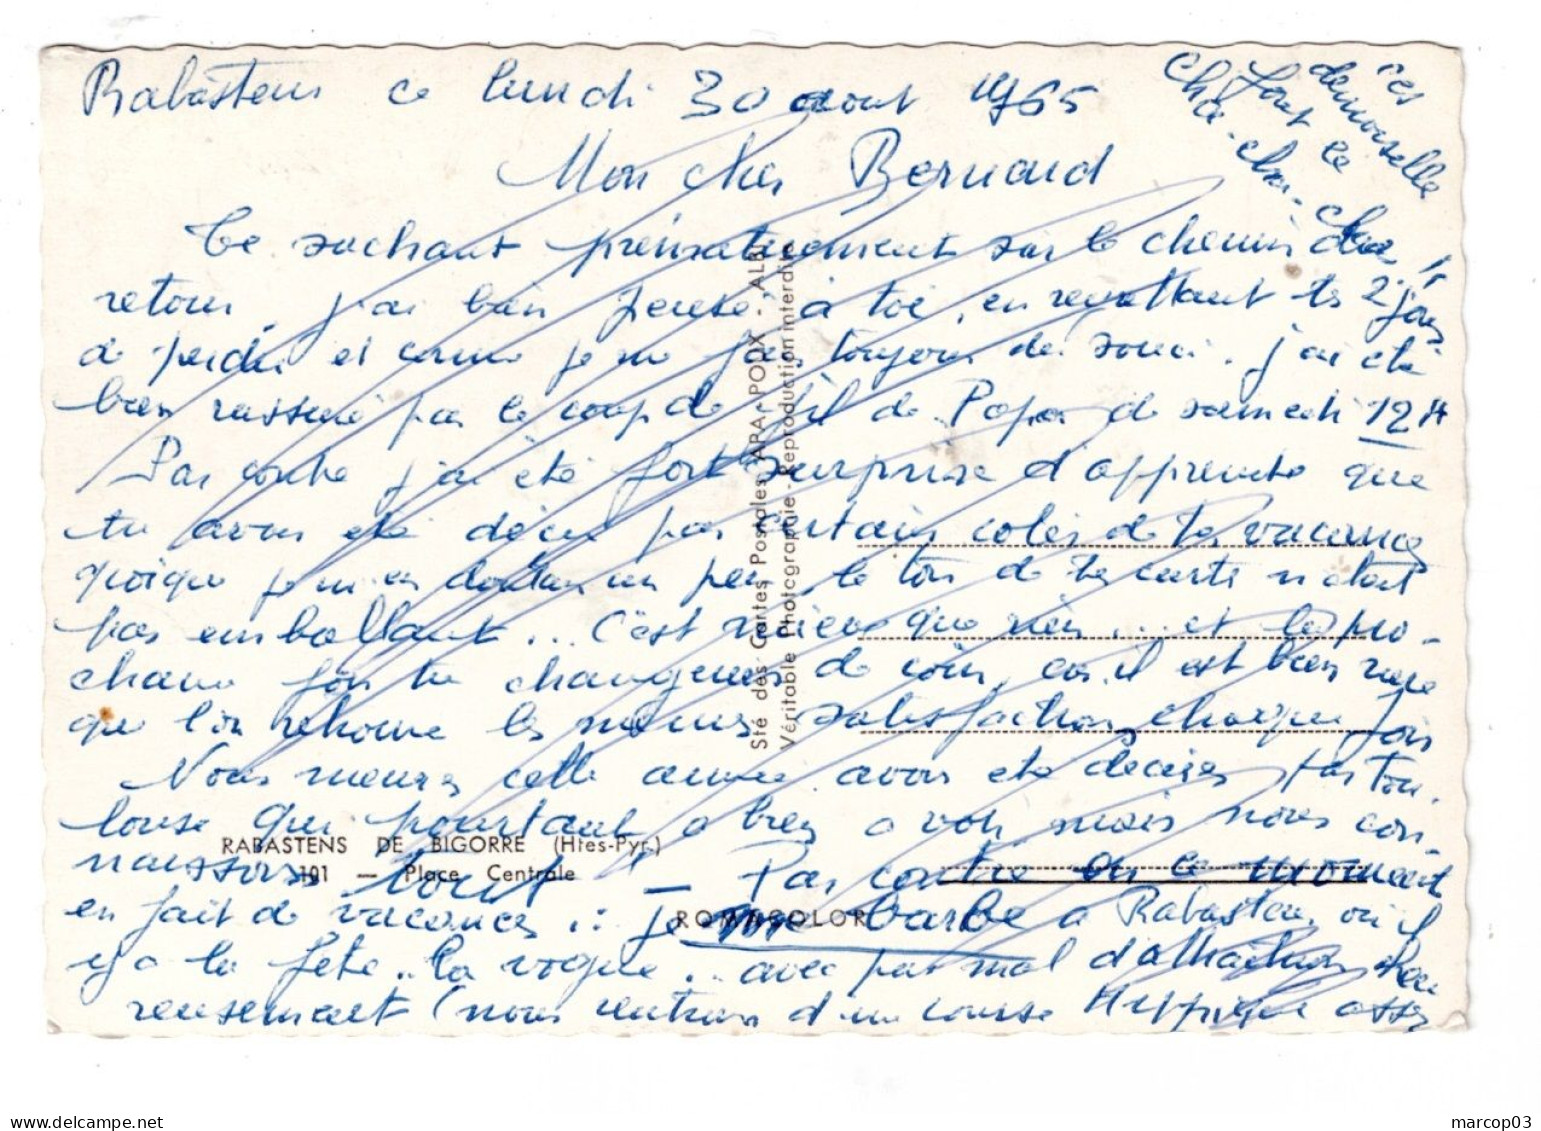 Rabastens ce lundi 30 aout 1965
ces
demoiselle
font le
cha-cha-cha
Mon cher Bernard
Te sachant prématurement sur le chemin du
retour, j'ai bien pensé à toi, en regrettant tes 2 jours
de perdu et comme je me fais toujours du souci. j'ai été
bien rassuré par le coup de fil de Papa de samedi 12 H
Par contre j'ai été fort surprise d'apprendre que
tu avais été déçu par certains cotés de tes vacances
quoique je m'en doutais un peu, le ton de ta carte n'était
pas emballant... C'est mieux que rien... et la pro-
chaine fois tu changeras de coin, car il est bien rare
que l'on retrouve les mêmes satisfactions chaque fois
Nous mêmes cette année avons été déçues par Tou-
louse qui pourtant a bien a voir mais nous con-
naissons tout - Par contre en ce moment
en fait de vacances.: je me barbe a Rabastens, où il
y a la fête.. la vogue... avec pas mal d'attractions heu
reusement (nous rentrons d'une course Hippique assez
Sté des Cartes Postales APA-POUX - ALBI
Véritable Photographie - Reproduction interdite
RABASTENS DE BIGORRE (Htes-Pyr.)
101 — Place Centrale
ROMACOLOR
marcop03